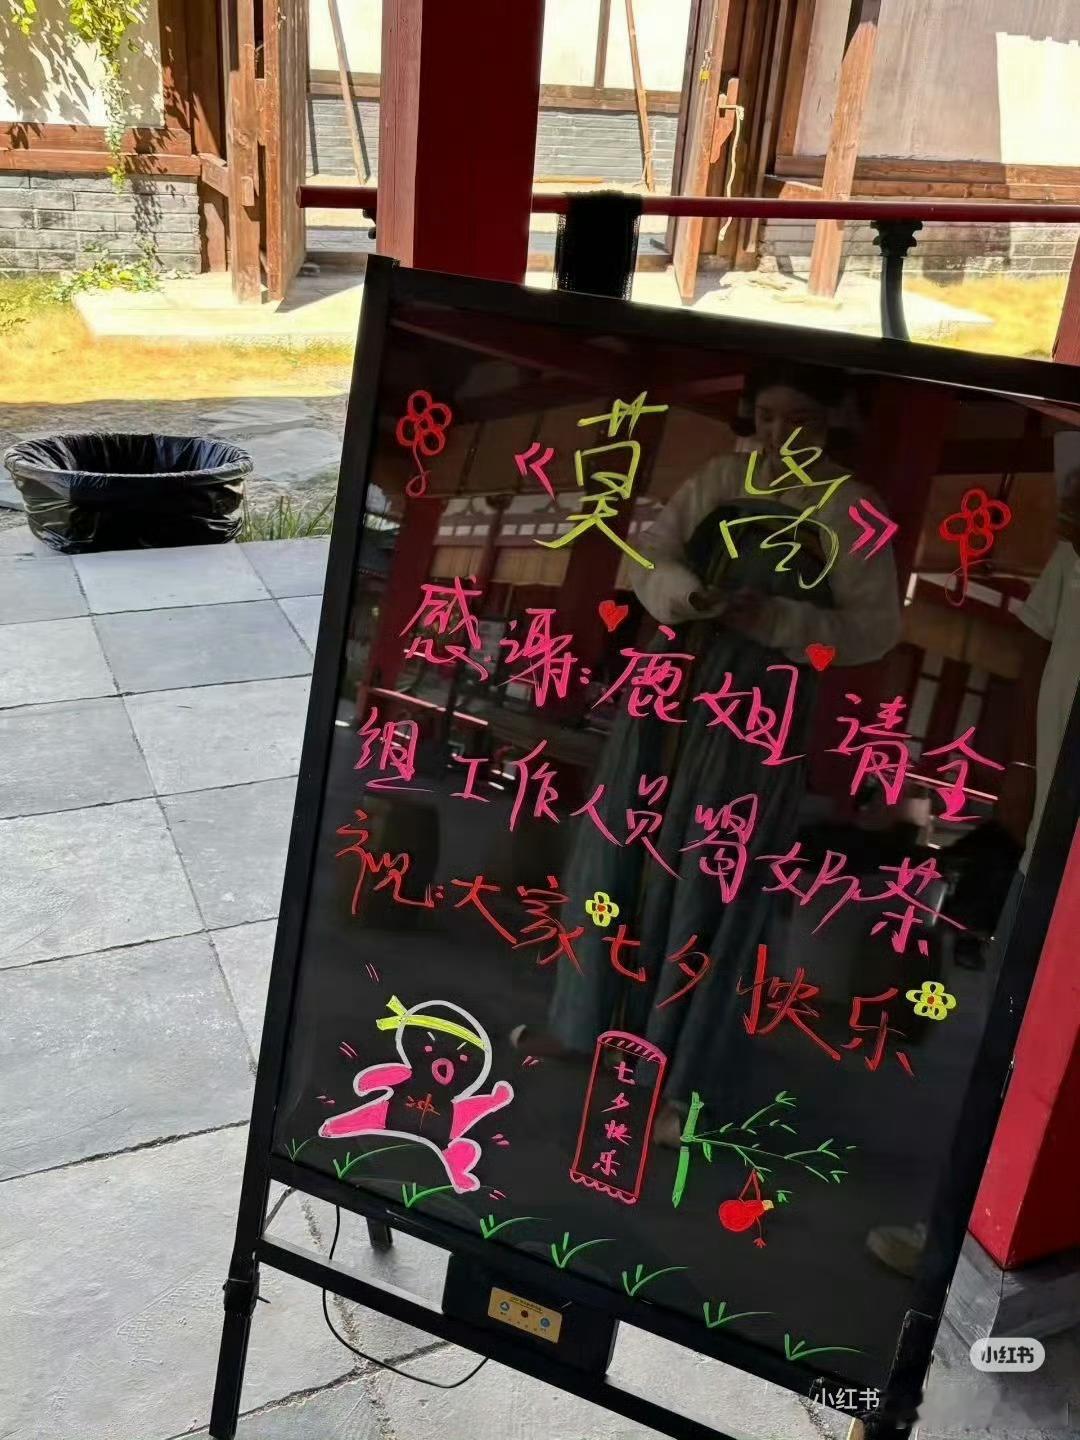 《莫离》
感谢:鹿姐请全
组工作人员喝奶茶
祝:大家七夕快乐
冲
七夕快乐
小红书
小红书